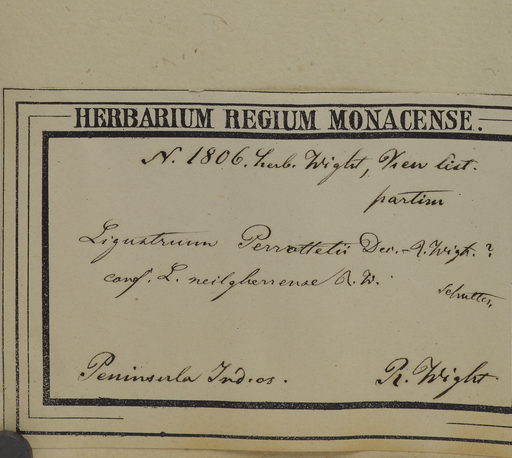 HERBARIUM REGIUM MONACENSE.
N. 1806. herb. Wight,
partim
Ligustrum Perrottetii Dec. R. Wigt. ?
conf. L. neilgherrense R. W.
Peninsula Ind. or.
R. Wight